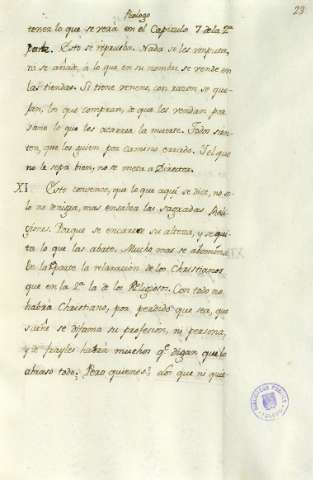 Prólogo
23
tenea lo que se verá en el Capitulo 7 de la 2ª
parte. Esto se reprueba. Nada se les imputa,
ni se añade, à lo que en su nombre se vende en
las tiendas. Si tiene veneno, con razon se que-
jan, los que compran, de que les vendan por
lo que les acarrea la muerte. Todos
ten, que los guien por camino errado. I el que
no lo sepa bien, no se meta a Director.
XI. Esto convence, que lo que aqui se dice, no so-
lo no denigra, mas ensalza las sagradas Reli-
giones. Porque se encarece su altura, y se qui-
ta lo que las abate. Mucho mas se abomina
en la parte la relaxación de los Christianos
que en la 2ª la de los Religiosos. Con todo no
habrá Christiano, por perdido que sea, que
sueñe se difama su profesion, ni persona,
y de frayles habrá muchos qe digan que lo
abraso todo. Pero quienes? los que ni que-